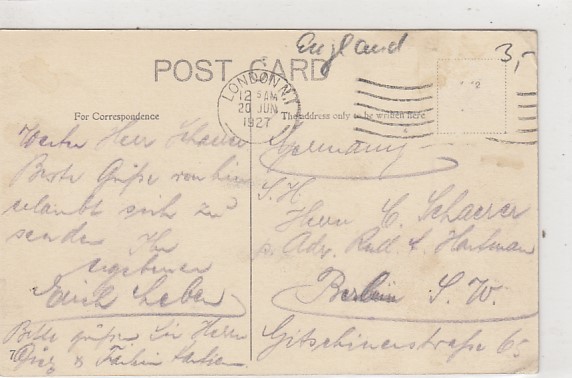 England
3,-
POST CARD
LONDON N.1
12 15 AM
20 JUN
1927
For Correspondence
The address only to be written here
Germany
Werter Herr Schaerer
Beste Grüße von hier
erlaubt sich zu
senden Ihr
ergebener
Erich
Bitte grüßen Sie Herrn
S. H.
Herrn C. Schaerer
p. Adr. Hartman
Berlin S. W.
Gitschinerstraße